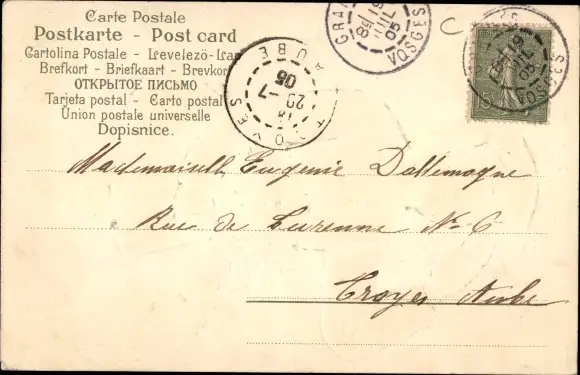 Carte Postale
Postkarte - Post card
Cartolina Postale - Levelező-Lap
Brefkort - Briefkaart - Brevkort
ОТКРЫТОЕ ПИСЬМО
Tarjeta postal - Carto postal
Union postale universelle
Dopisnice.
TROYES AUBE
20 -7
05
VOSGES
19
05
15c
VOSGES
19
05
C
Mademoiselle Eugenie Dallemagne
Rue de Turenne No 6
Troyes Aube